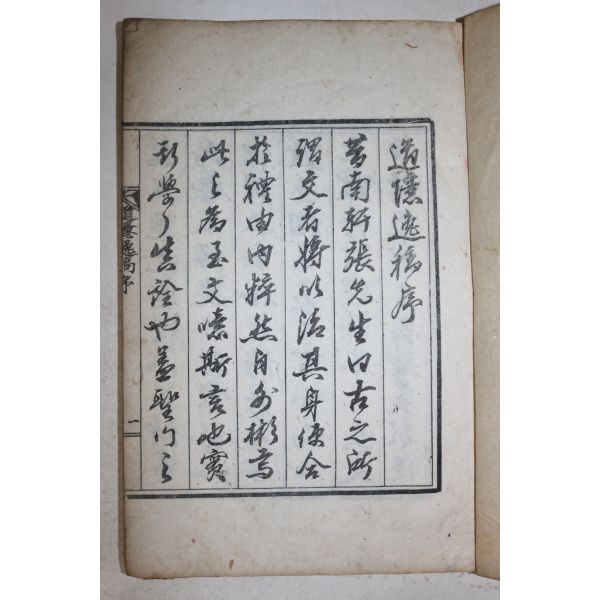 道遺稿序
昔南軒張先生曰古之所
謂文者將以治其身使合
於禮內粹然自外彬焉
此之為至文噫斯言也實
學之真詮也蓋聖門之
道遺稿序
一